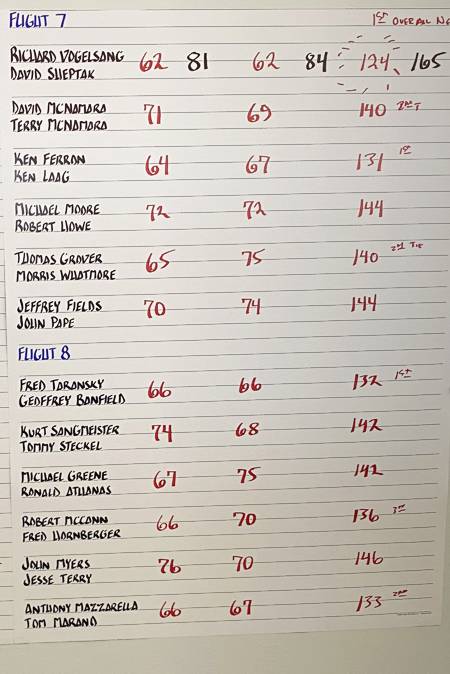 FLIGHT 7 1ST OVERALL NE
RICHARD VOGELSANG
DAVID SHEPTAK 62 81 62 84 124 165
DAVID MCNAMARA
TERRY MCNAMARA 71 69 140 2ND T
KEN FERRON
KEN LAAG 64 67 131 1ST
MICHAEL MOORE
ROBERT HOWE 72 72 144
THOMAS GROVER
MORRIS WHATMORE 65 75 140 2ND TIE
JEFFREY FIELDS
JOHN PAPE 70 74 144
FLIGHT 8
FRED TARANSKY
GEOFFREY BANFIELD 66 66 132 1ST
KURT SANGMEISTER
TOMMY STECKEL 74 68 142
MICHAEL GREENE
RONALD ATHANAS 67 75 142
ROBERT MCCANN
FRED HORNBERGER 66 70 136 3RD
JOHN MYERS
JESSE TERRY 76 70 146
ANTHONY MAZZARELLA
TOM MARANO 66 67 133 2ND